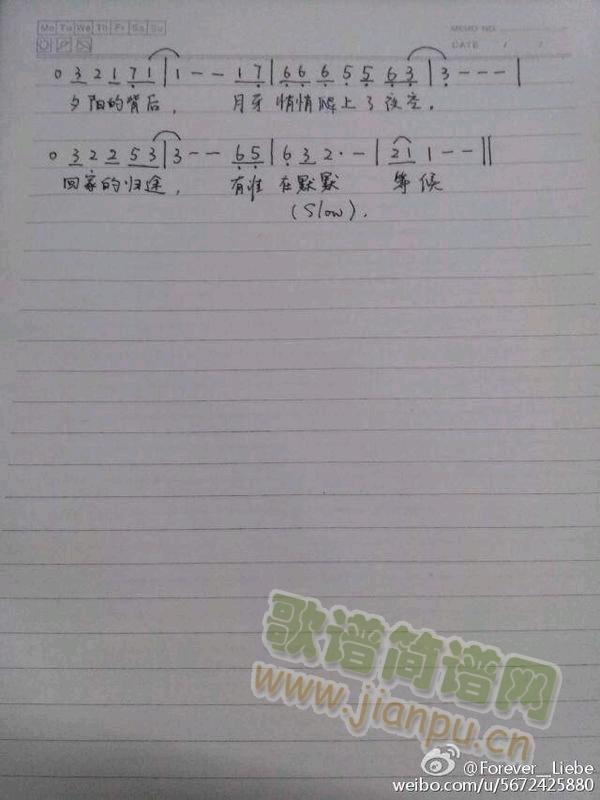 Mo Tu We Th Fr Sa Su
MEMO NO.
DATE / /
0 3 2 1 7 1 | 1 - - 1 7 | 6 6 6 5 5 6 3 | 3 - - - |
夕阳的背后, 月牙悄悄爬上了夜空.
0 3 2 2 5 3 | 3 - - 6 5 | 6 3 2 · - | 2 1 1 - - ||
回家的归途, 有谁在默默 等候
(Slow).
歌谱简谱网
www.jianpu.cn
@Forever__Liebe
weibo.com/u/5672425880